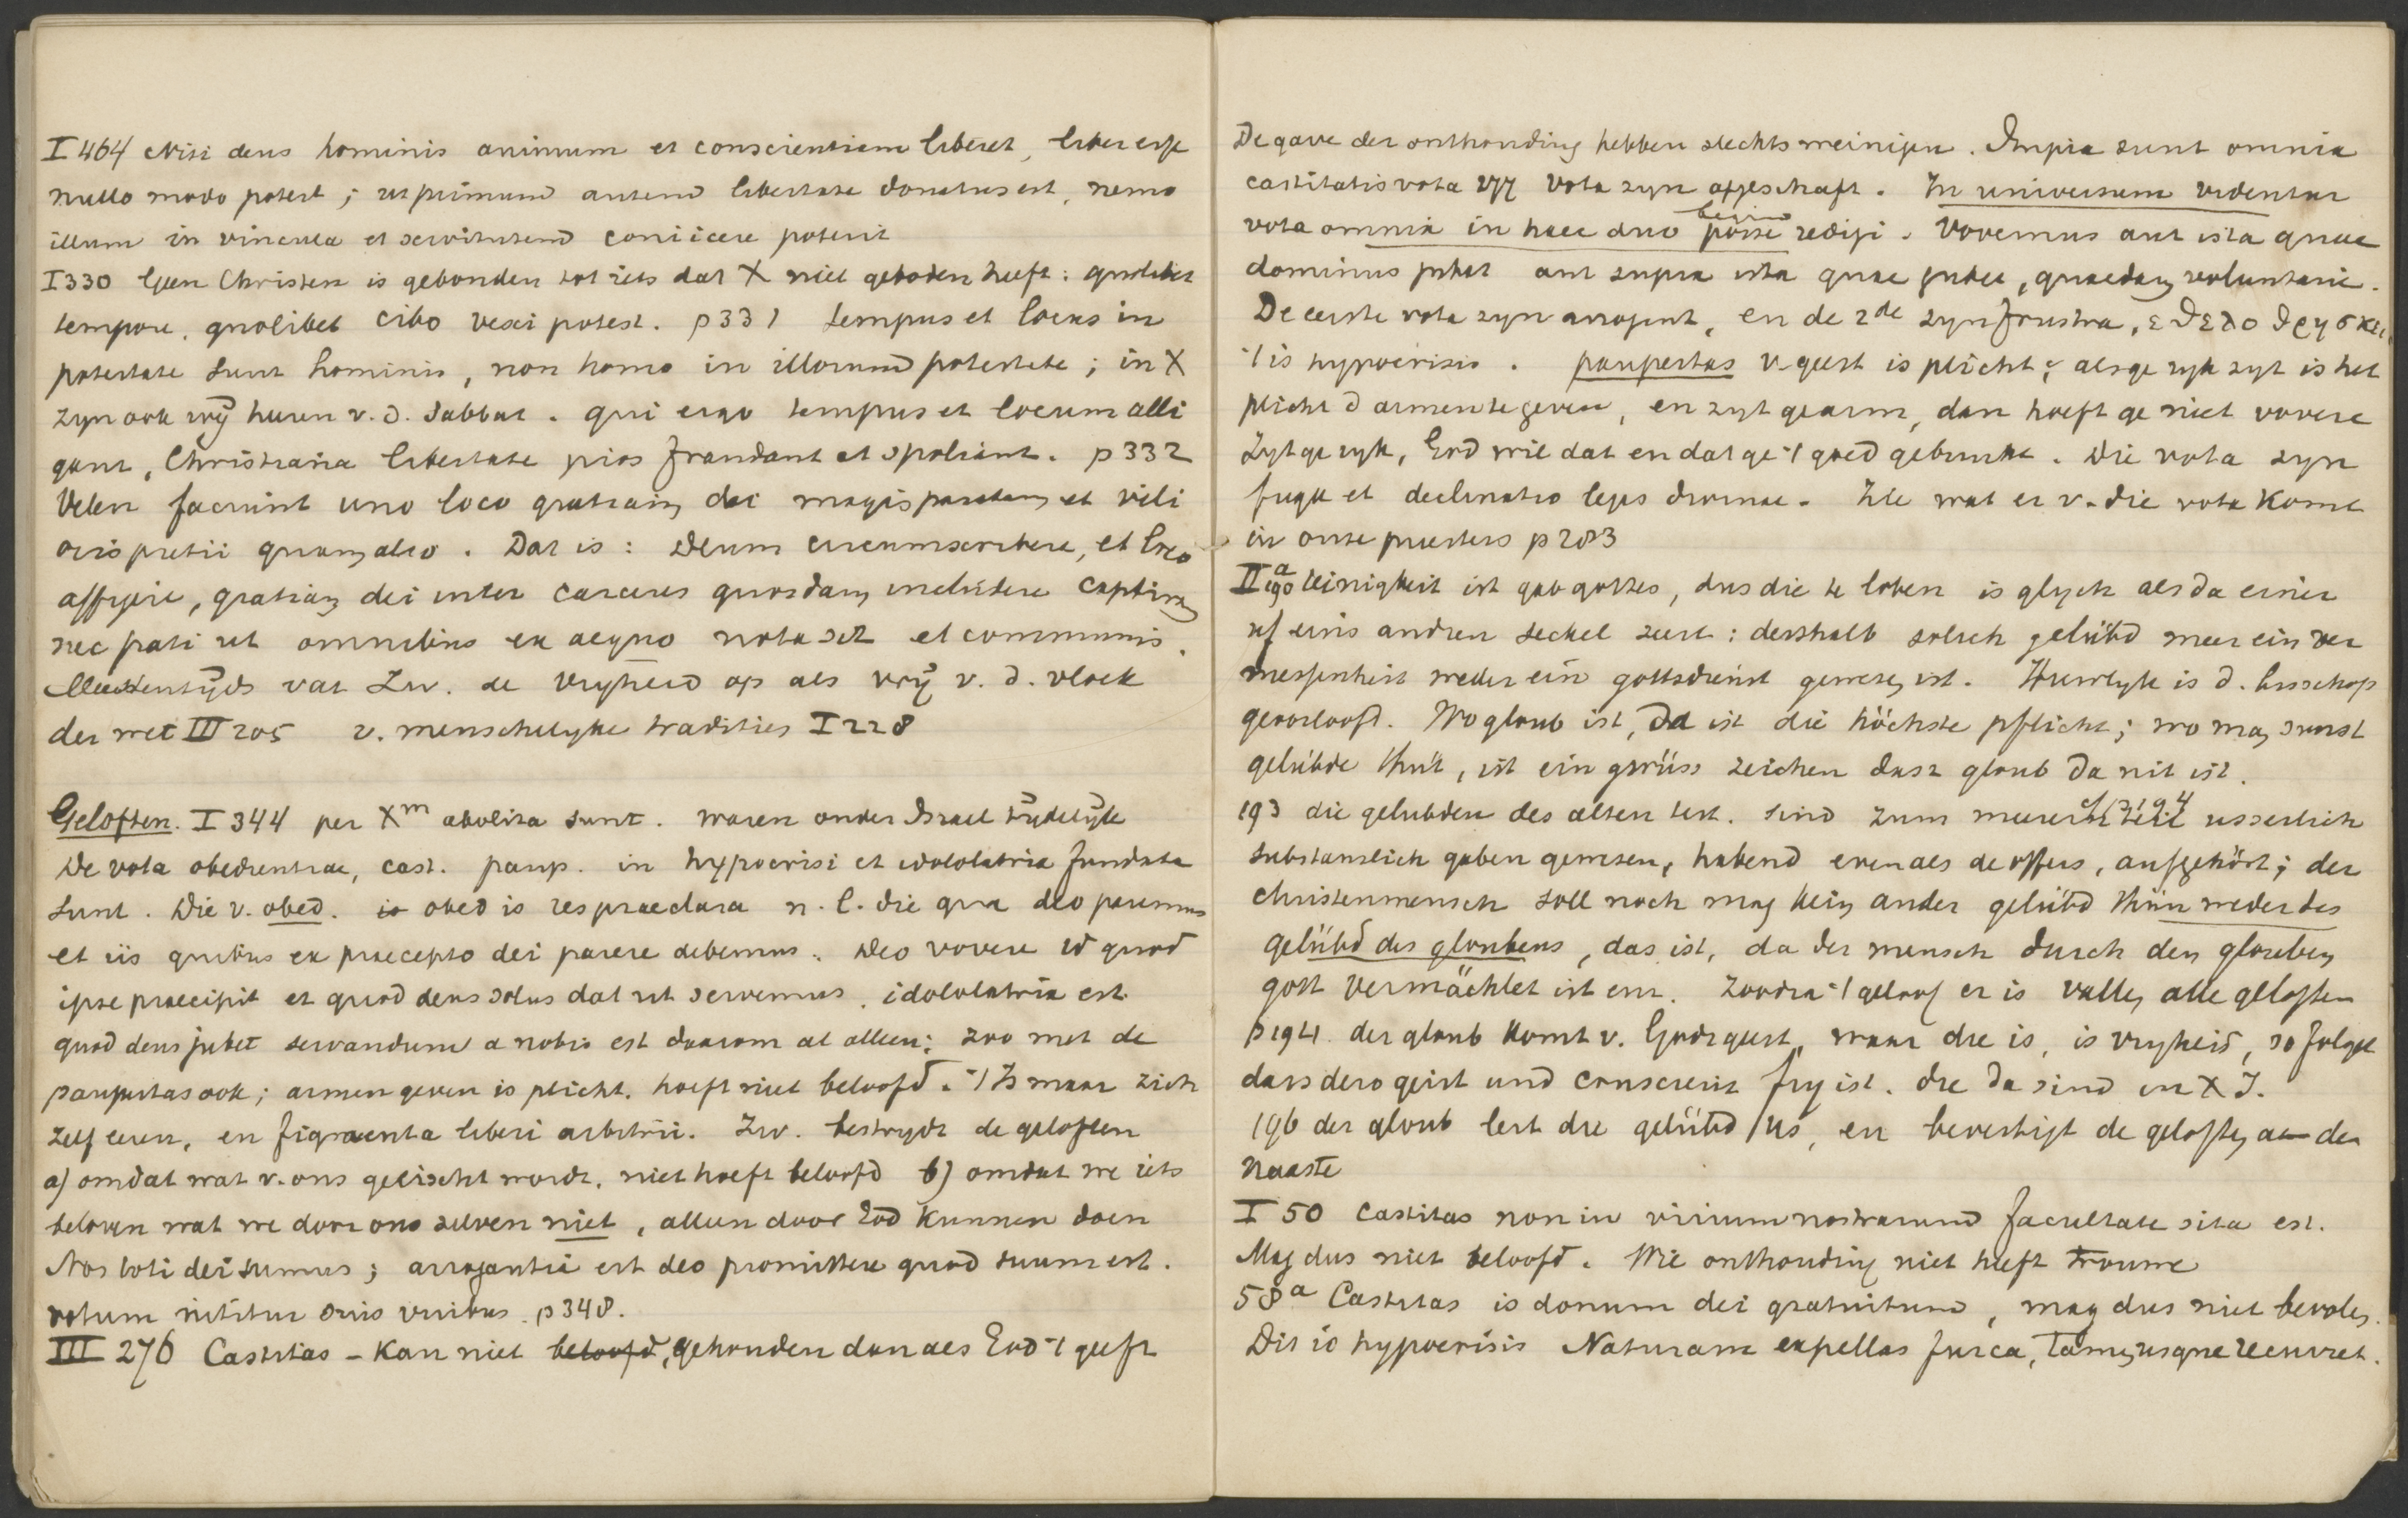 I 464 Nisi deus hominis animum et conscientiam liberet, liber esse
nullo modo potest; ut primum autem libertate donatus est, nemo
illum in vincula et servitutem coniicere poterit
I 330 Geen Christen is gebonden tot iets dat X niet geboden heeft: quolibet
tempore, quolibet cibo vesci potest. p 331 tempus et locus in
potestate sunt hominis, non homo in illorum potestate; in X
zyn ook vrij heeren v. d. Sabbat. qui ergo tempus et locum alli
gant, Christiana libertate pios fraudant et spoliant. p 332
Velen faciunt uno loco gratiam dei magis paratam et vili
oris pretii quam alio. Dat is: Deum circumscribere, et loco
affigere, gratiam dei inter carceres quosdam includere captivam
nec pati ut omnibus ex aequo nota sit et communis.
Meestentijds vat Zw. de vryheid op als vrij v. d. vloek
der wet III 205 v. menschelyke tradities I 228
Geloften. I 344 per Xm abolita sunt. waren onder Israel tijdelijk
De vota obedientiae, cast. paup. in hypocrisi et idololatria fundata
sunt. Die v. obed. is obed is res praeclara n. l. die qua deo paremus
et iis quibus ex praecepto dei parere debemus. Deo vovere id quod
ipse praecipit et quod deus solus dat ut servemus, idololatria est.
quod deus jubet servandum a nobis est daarom al alleen; zoo met de
paupertas ook; armen geven is plicht, hoeft niet beloofd. 't Is maar zich
zelf eeren, en figmenta liberi arbitrii. Zw. bestrydt de geloften
a) omdat wat v. ons geëischt wordt, niet hoeft beloofd b) omdat we iets
beloven wat we door ons zelven niet, alleen door God kunnen doen
Nos toti dei sumus; arrogantia est deo promittere quod suum est.
votum nititur suis viribus. p 348.
III 276 Castitas - kan niet beloofd, gehouden dan als God 't geeft
De gave der onthouding hebben slechts weinigen. Impia sunt omnia
castitatis vota 277 Vota zyn afgeschaft. In universum videntur
vota omnia in haec duo posse redigi. Vovemus aut ista quae
dominus jubet aut supra ista quae jubet, quaedam voluntarie.
De eerste vota zyn arrogant, en de 2de zyn frustra, εθελοθρησκει
't is hypocrisis. paupertas v geest is plicht; als ge ryk zyt is het
plicht d armen te geven, en zyt ge arm, dan hoeft ge niet vovere
Zyt ge ryk, God wil dat en dat ge 't goed gebruikt. Die vota zyn
fuga et declinatio legis divinae. Zie wat er v. die vota komt
in onze priesters p 283
IIa 190 Reinigkeit ist gab gottes, dus die te loven is glyck als da einer
uf eins andren seckel zert: desshalb solich gelübd meer ein ver
messenheit weder ein gottsdienst gewesen ist. Huwlyk is d. bisschop
geoorloofd. Wo gloub ist, da ist die höchste pflicht; wo man sunst
gelübde thut, ist ein gwüss zeichen dass gloub da nit ist.
193 die gelubden des alten test. sind zum meeren teil usserlich
substanzlich gaben gewesen, habend even als de offers, aufgehört; der
Christenmensch soll noch mag kein ander gelübd thun weder des
gelübd des gloubens, das ist, da der mensch durch den glouben
gott vermächlet ist enz. Zoodra 't geloof er is vallen alle geloften
p 194. der gloub komt v. Gods geest, waar die is, is vryheid, so folget
dass dero geist und conscienz fry ist. die da sind in X J.
196 der gloub lert die gelübd us, en bevestigt de geloften aan den
naaste
I 50 Castitas non in virium nostrarum facultate sita est.
Mag dus niet beloofd. Wie onthouding niet heeft trouwe
58a Castitas is donum dei gratuitum, mag dus niet bevolen.
Dit is hypocrisis Naturam expellas furca, tamen usque recurret.